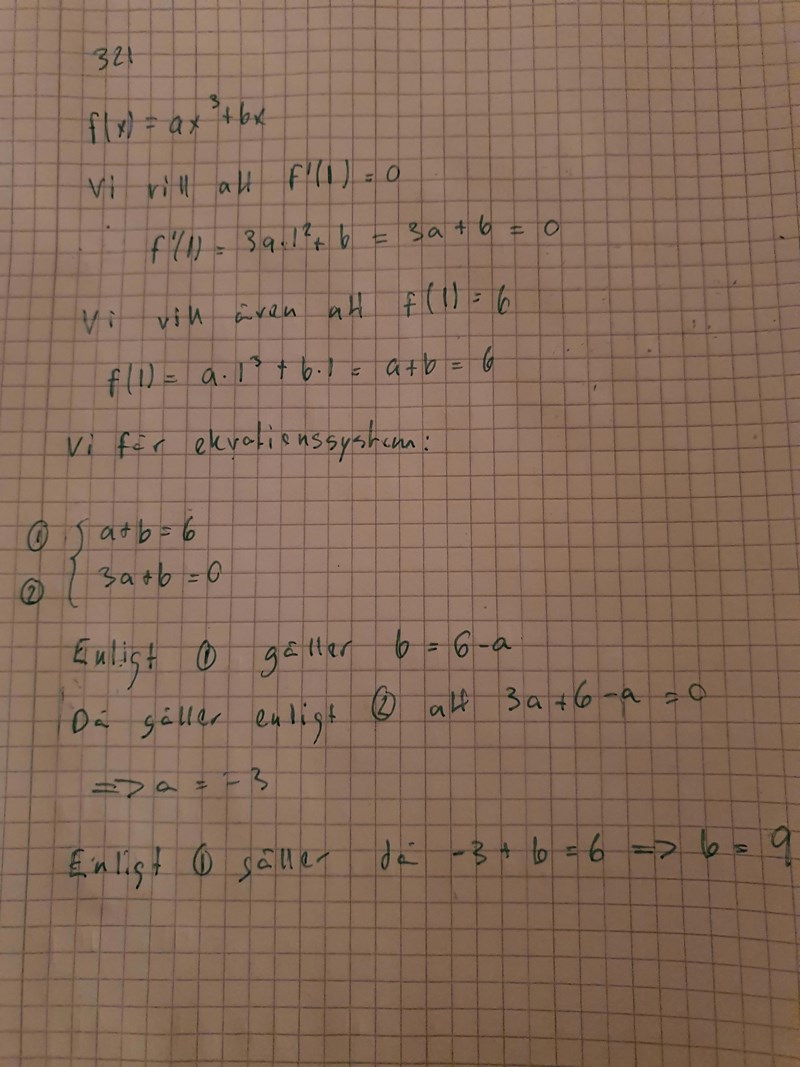 321
f(x) = ax³+bx
Vi vill att f'(1) = 0
f'(1) = 3a·1²+ b = 3a + b = 0
Vi vill även att f(1) = 6
f(1) = a·1³ + b·1 = a+b = 6
Vi får ekvationssystem:
① { a+b = 6
② { 3a+b = 0
Enligt ① gäller b = 6-a
Då gäller enligt ② att 3a+6-a = 0
=> a = -3
Enligt ① gäller då -3 + b = 6 => b = 9